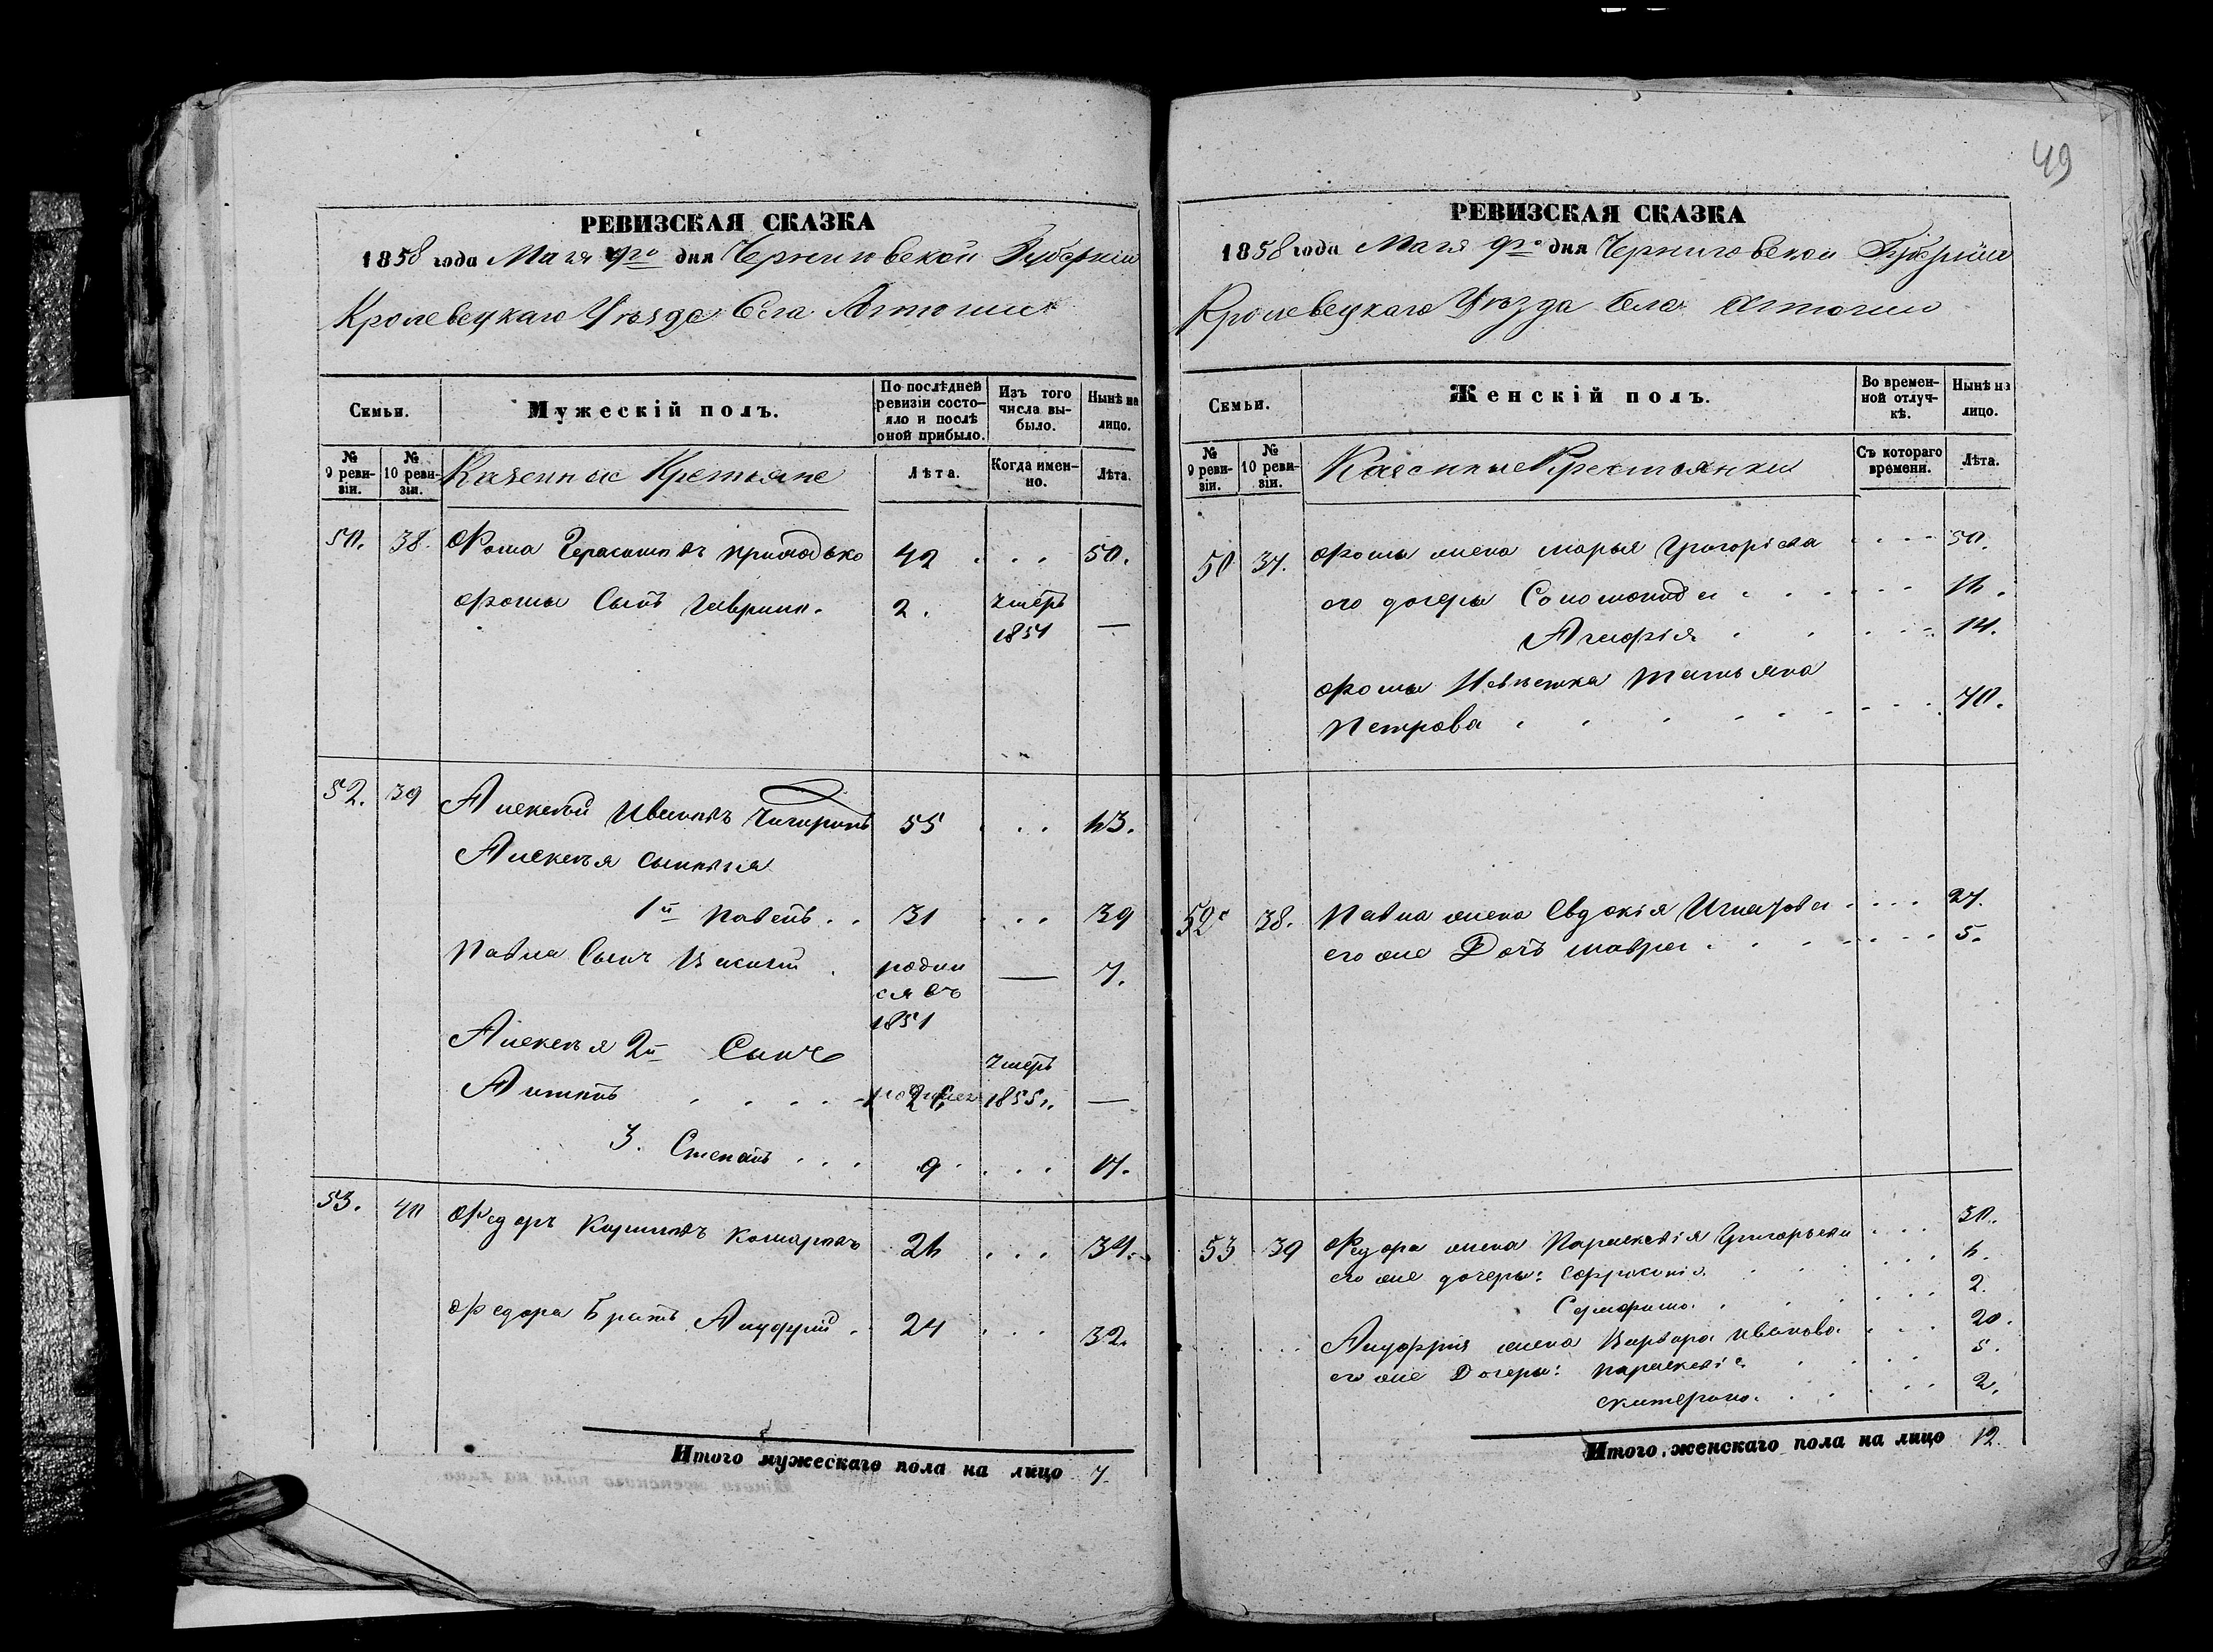 49
РЕВИЗСКАЯ СКАЗКА
1858 года Мая 9го дня Черниговской Губерніи
Кролевецкаго Уѣзда Села
Семьи.
Мужескій полъ.
По послѣдней ревизіи состояло и послѣ оной прибыло.
Изъ того числа выбыло.
Нынѣ на лицо.
№ 9 ревизіи.
№ 10 ревизіи.
Казенные Крестьяне
Лѣта.
Когда именно.
Лѣта.
50. 38. Фома Герасимовъ Приходько 42 . . . 50.
Фомы Сынъ Гаврило. 2. умеръ
1854 —
52. 39 Алексѣй Ивановъ 55 . . . 63.
Алексѣя сыновья
1й Павелъ . . 31 . . . 39
Павла Сынъ Василій . родил
ся въ — 7.
1851
Алексѣя 2й Сынъ умеръ
Антонъ . . . . 1855. —
3. Степанъ . . . 9 . . . 17.
53. 40 Федоръ 26 . . . 34.
Федора Братъ Андрій . 24 . . . 32.
Итого мужескаго пола на лицо 7.
РЕВИЗСКАЯ СКАЗКА
1858 года Мая 9го дня Черниговской Губерніи
Кролевецкаго Уѣзда Села
Семьи.
Женскій полъ.
Во временной отлучкѣ.
Нынѣ на лицо.
№ 9 ревизіи.
№ 10 ревизіи.
Казенные Крестьянки
Съ котораго времени.
Лѣта.
50 37. Фомы жена Марья Григорьева . . . . 50.
его дочери Соломонида . . . . . . 16.
Агафія . . . . . 14.
Фомы Невѣстка Татьяна
Петрова . . . . . . . . . 40.
52 38. Павла жена Евдокія Игнатова . . . . 27.
его же Дочь Мавра . . . . . . . 5.
53 39 Федора жена Параскевія Григорьева . . . 30.
его же дочери: Ефросинія . . . . . 6.
. . . . . . 2.
жена Варвара Иванова . . . 20.
его же Дочери: Параскевія . . . . 5.
Екатерина . . . . . . 2.
Итого женскаго пола на лицо 12.